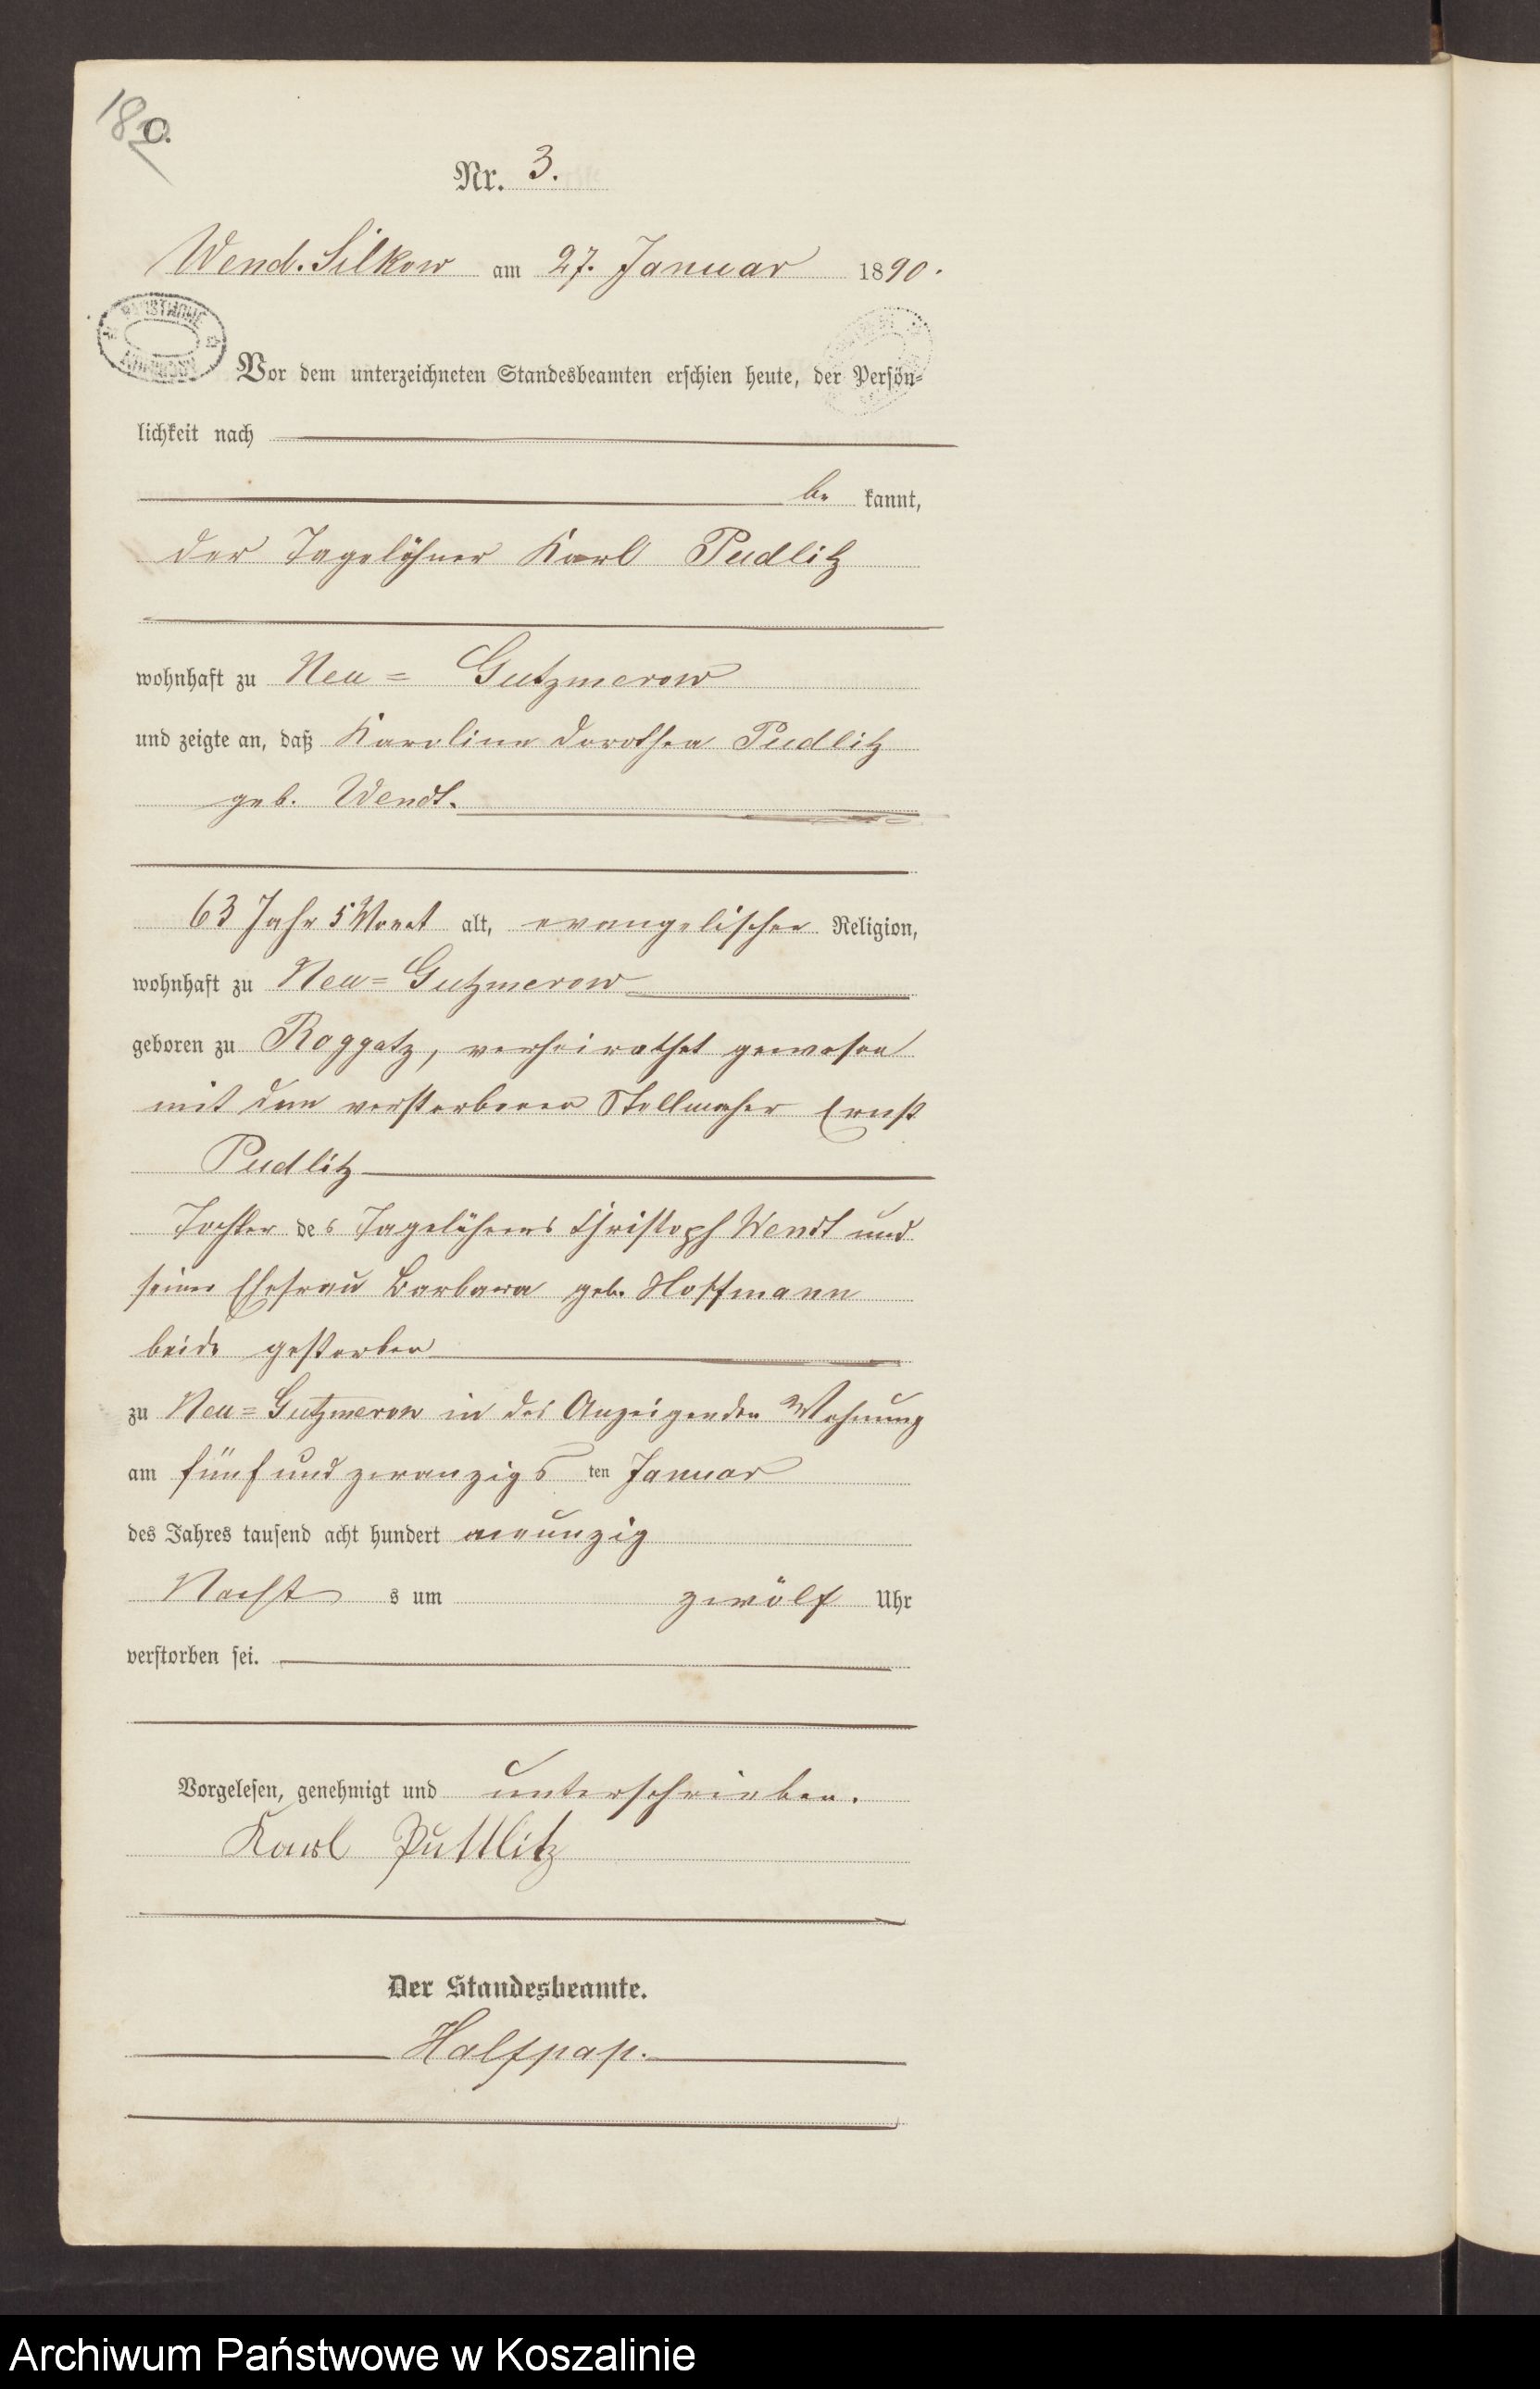 Nr. 3.
Wend. Silkow am 27. Januar 1890.
Vor dem unterzeichneten Standesbeamten erschien heute, der Persön-
lichkeit nach
be kannt,
der Tagelöhner Karl Pudlitz
wohnhaft zu Neu= Gutzmerow
und zeigte an, daß Karoline Dorothea Pudlitz
geb. Wendt.
63 Jahr 5 Monat alt, evangelischer Religion,
wohnhaft zu Neu=Gutzmerow
geboren zu Roggatz, verheirathet gewesen
mit dem verstorbenen Stellmacher Ernst
Pudlitz
Tochter des Tagelöhners Christoph Wendt und
seiner Ehefrau Barbara geb. Hoffmann
beide gestorben
zu Neu=Gutzmerow in des Anzeigenden Wohnung
am fünf und zwanzigs ten Januar
des Jahres tausend acht hundert neunzig
Nacht s um zwölf Uhr
verstorben sei.
Vorgelesen, genehmigt und unterschrieben.
Karl Puttlitz
Der Standesbeamte.
Halfpap.
Archiwum Państwowe w Koszalinie